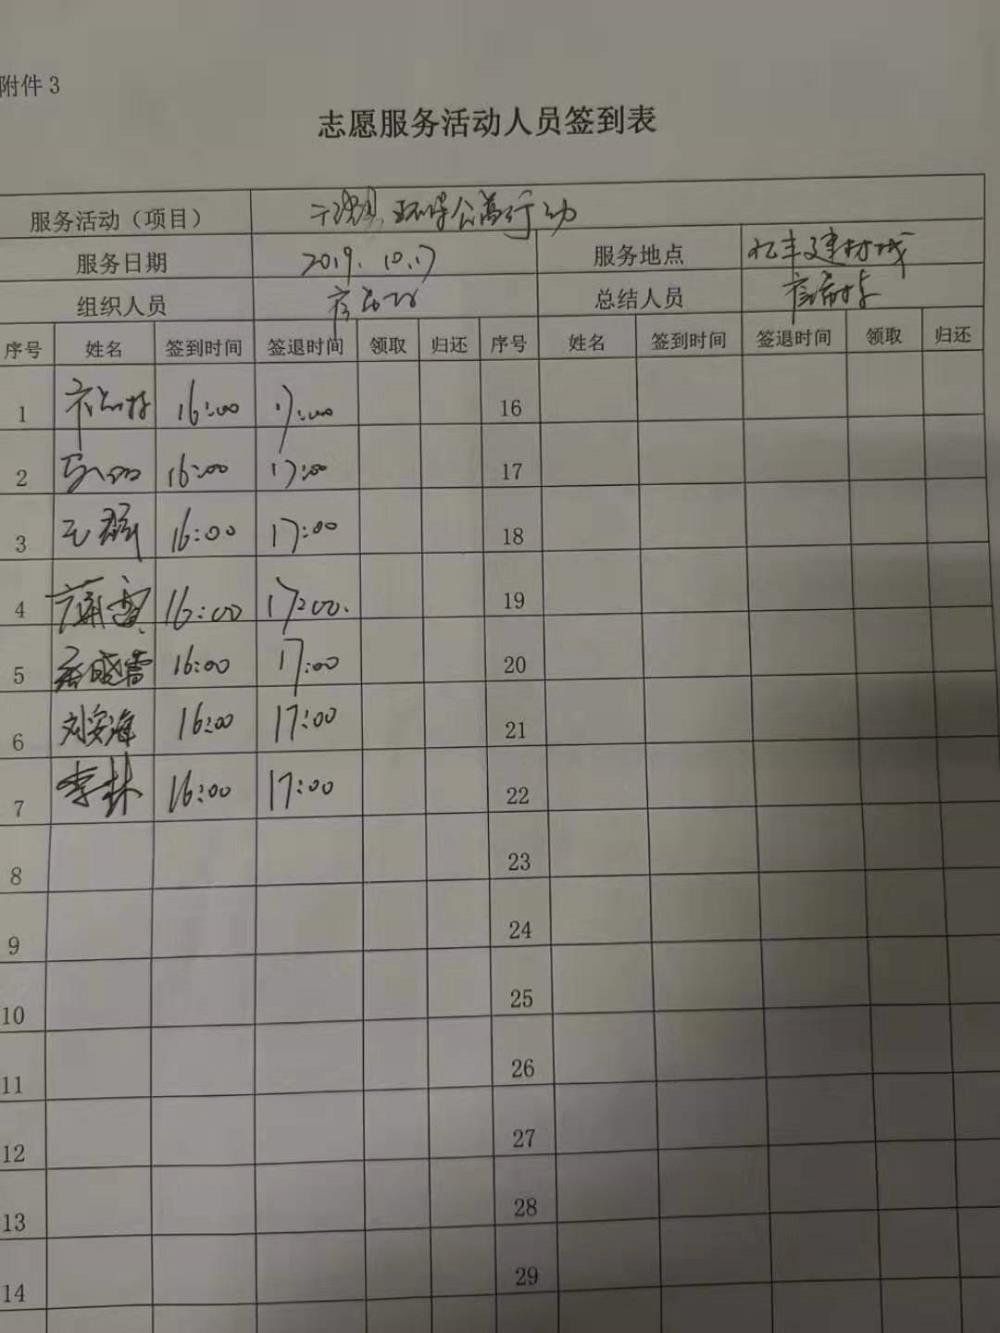 附件 3
志愿服务活动人员签到表
服务活动（项目） 环保公益行动
服务日期 2019. 10. 17 服务地点 建材城
组织人员 总结人员
序号 姓名 签到时间 签退时间 领取 归还 序号 姓名 签到时间 签退时间 领取 归还
1 16:00 17:00 16
2 16:00 17:00 17
3 王 16:00 17:00 18
4 16:00 17:00. 19
5 16:00 17:00 20
6 刘安海 16:00 17:00 21
7 李林 16:00 17:00 22
8 23
9 24
10 25
11 26
12 27
13 28
14 29